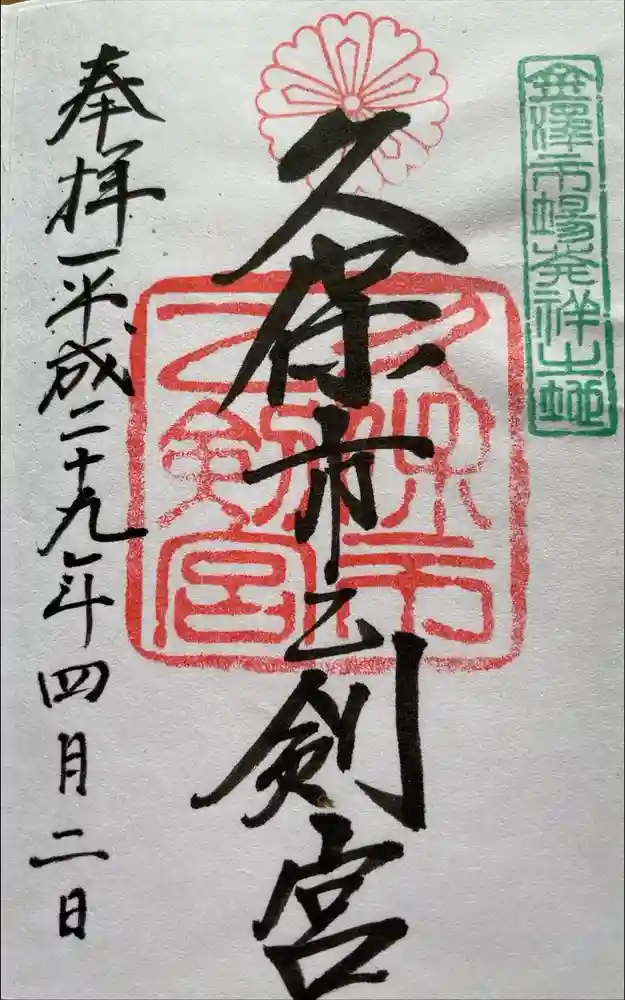 金澤市場発祥之地
久保市乙剣宮
久保市
乙剣宮
奉拝 平成二十九年四月二日